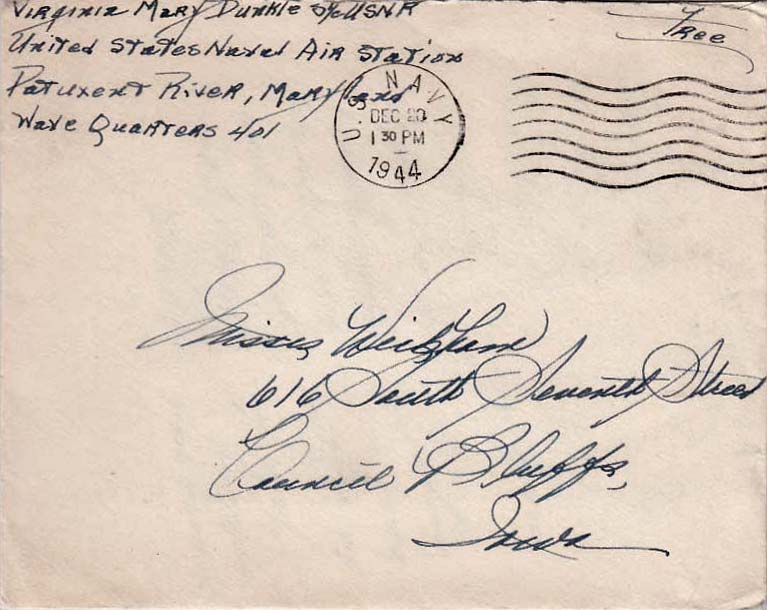 Virginia Mary Dunkle S2c USNR
United States Naval Air Station
Patuxent River, Maryland
Wave Quarters 401
Free
U.S. NAVY
DEC 20
1 30 PM
1944
Misses
616 South Seventh Street
Council Bluffs,
Iowa